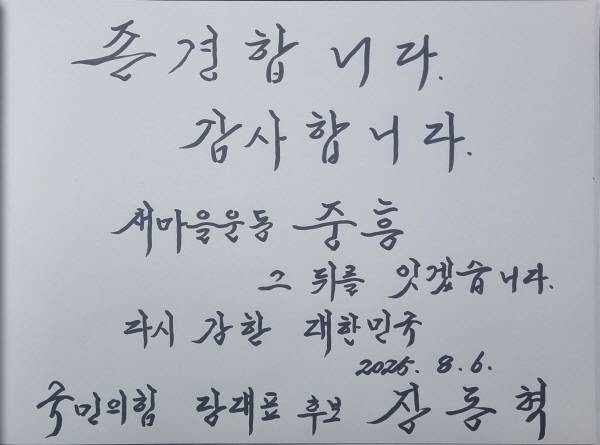 존경합니다.
감사합니다.
새마을운동 중흥
그 뒤를 잇겠습니다.
다시 강한 대한민국
2025. 8. 6.
국민의힘 당대표 후보 장동혁